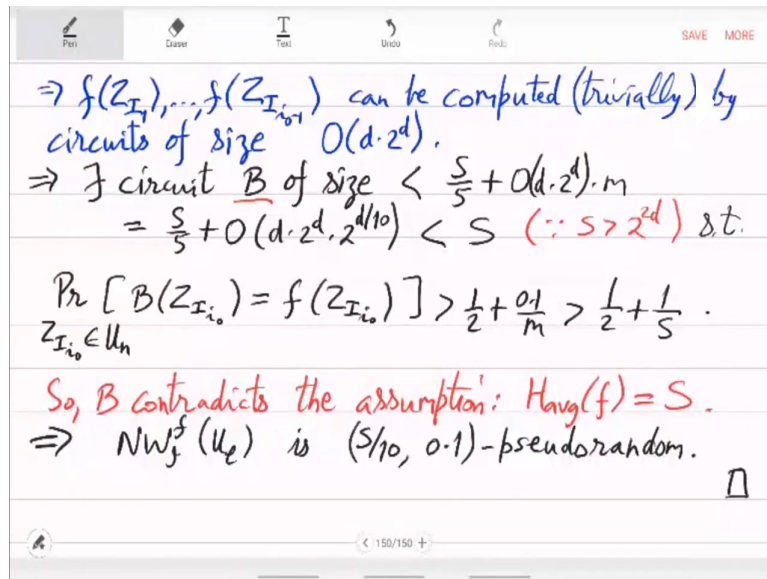 Pen Eraser Text Undo Redo SAVE MORE
⇒ f(Z_{I_1}),...,f(Z_{I_{i_0-1}}) can be computed (trivially) by
circuits of size O(d·2^d).
⇒ ∃ circuit B of size < S/5 + O(d·2^d)·m
= S/5 + O(d·2^d·2^{d/10}) < S (∵ S > 2^{2d}) s.t.
Pr [B(Z_{I_{i_0}}) = f(Z_{I_{i_0}})] > 1/2 + 0.1/m > 1/2 + 1/S .
Z_{I_{i_0}} ∈ U_n
So, B contradicts the assumption: Havg(f) = S.
⇒ NW_J^f (U_ℓ) is (S/10, 0.1)-pseudorandom.
□
< 150/150 +